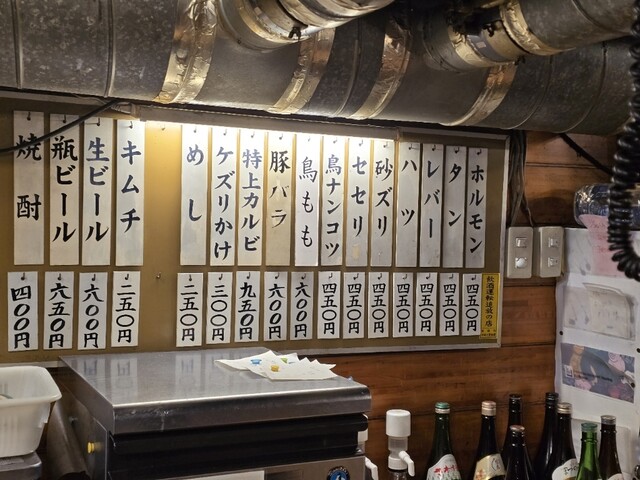 ホルモン
四五〇円
タン
四五〇円
レバー
四五〇円
ハツ
四五〇円
砂ズリ
四五〇円
セセリ
四五〇円
鳥ナンコツ
四五〇円
鳥もも
六〇〇円
豚バラ
六〇〇円
特上カルビ
九五〇円
ケズリかけ
三〇〇円
めし
二五〇円
キムチ
二五〇円
生ビール
六〇〇円
瓶ビール
六五〇円
焼酎
四〇〇円
飲酒運転追放の店